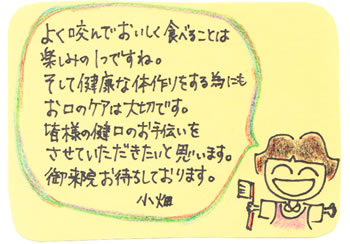 よく咬んでおいしく食べることは
楽しみの1つですね。
そして健康な体作りをする為にも
お口のケアは大切です。
皆様の健口のお手伝いを
させていただきたいと思います。
御来院お待ちしております。
小畑